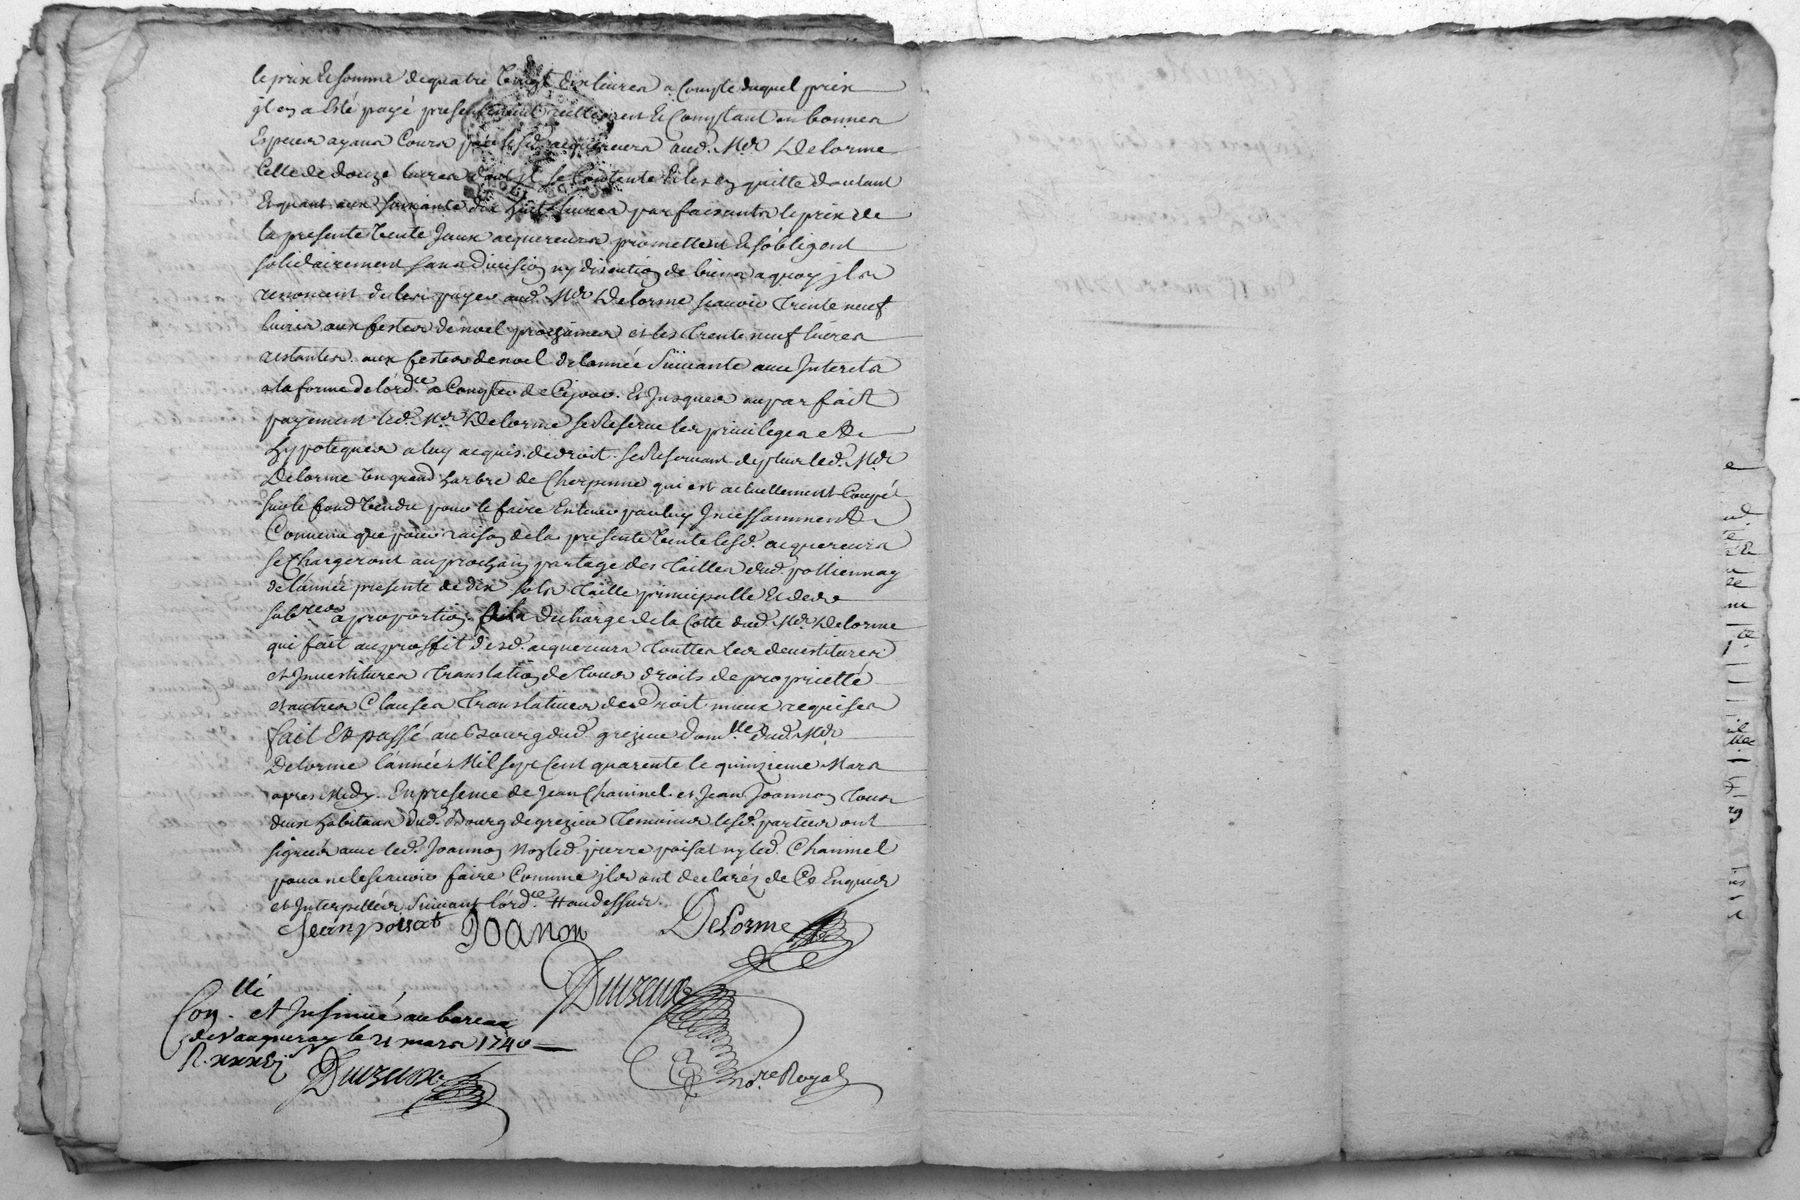 le prix et somme de quatre vingt dix livres a compte duquel prix
il en a esté payé presentement reellement et comptant en bonnes
Especes ayans cours par lesd. acquereurs aud. Mr. Delorme
Celle de douze livres dont il se contente et les en quitte d'autant
Et quant aux soixante dix huit livres parfaisants le prix de
la presente vente Iceux acquereurs promettent et s'obligent
solidairement sans division ny discution de biens a quoy ils
renoncent de les payer aud. Mr. Delorme scavoir trente neuf
livres aux festes de noel prochaines et les trente neuf livres
restantes aux festes de noel de l'année suivante avec Interets
a la forme de l'ord.ce a compter de ce jour. Et jusques au parfait
payement led. Mr. Delorme se reserve les privileges et
hypoteques a luy acquis de droit. se reservant de plus led. Mr.
Delorme un grand harbre de Cherpenne qui est actuellement coupé
sur le fond vendu pour le faire enlever par luy Incessamment
Convenu que pour raison de la presente vente lesd. acquereurs
se chargeront au prochain partage des tailles dud. polliennay
de l'année presente de dix sols taille principalle et des
à proportion à la decharge de la cotte dud. Mr. Delorme
qui fait au proffit desd. acquereurs touttes les devestitures
et Investitures translation de tous droits de proprietté
et autres clauses translatives de droit mieux requises
fait et passé au bourg dud. grezieu dom.lle dud. Mr.
Delorme l'année Mil sept cent quarente le quinzieme Mars
apres Midy. En presence de Jean Chaninel et Jean Joannon tous
deux habitans dud. Bourg de grezieu temoins lesd. parties ont
signées avec led. Joannon non led. pierre poisat ny led. Chaninel
pour ne le scavoir faire comme ils ont declarés de ce Enquis
et Interpellés suivant l'ord.ce
Jean poisat Joanon Delorme
Duizeux
Con.lle et Insinué au bureau
de Vaugneray le 21 mars 1740
Duizeux
no.re Royal